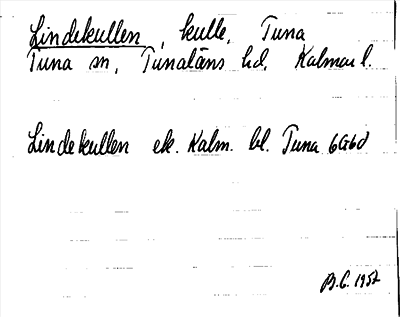 Lindekullen, kulle, Tuna
Tuna sn, Tunaläns hd, Kalmar l.
Lindekullen ek. Kalm. bl. Tuna 6G6d
B.G. 1957